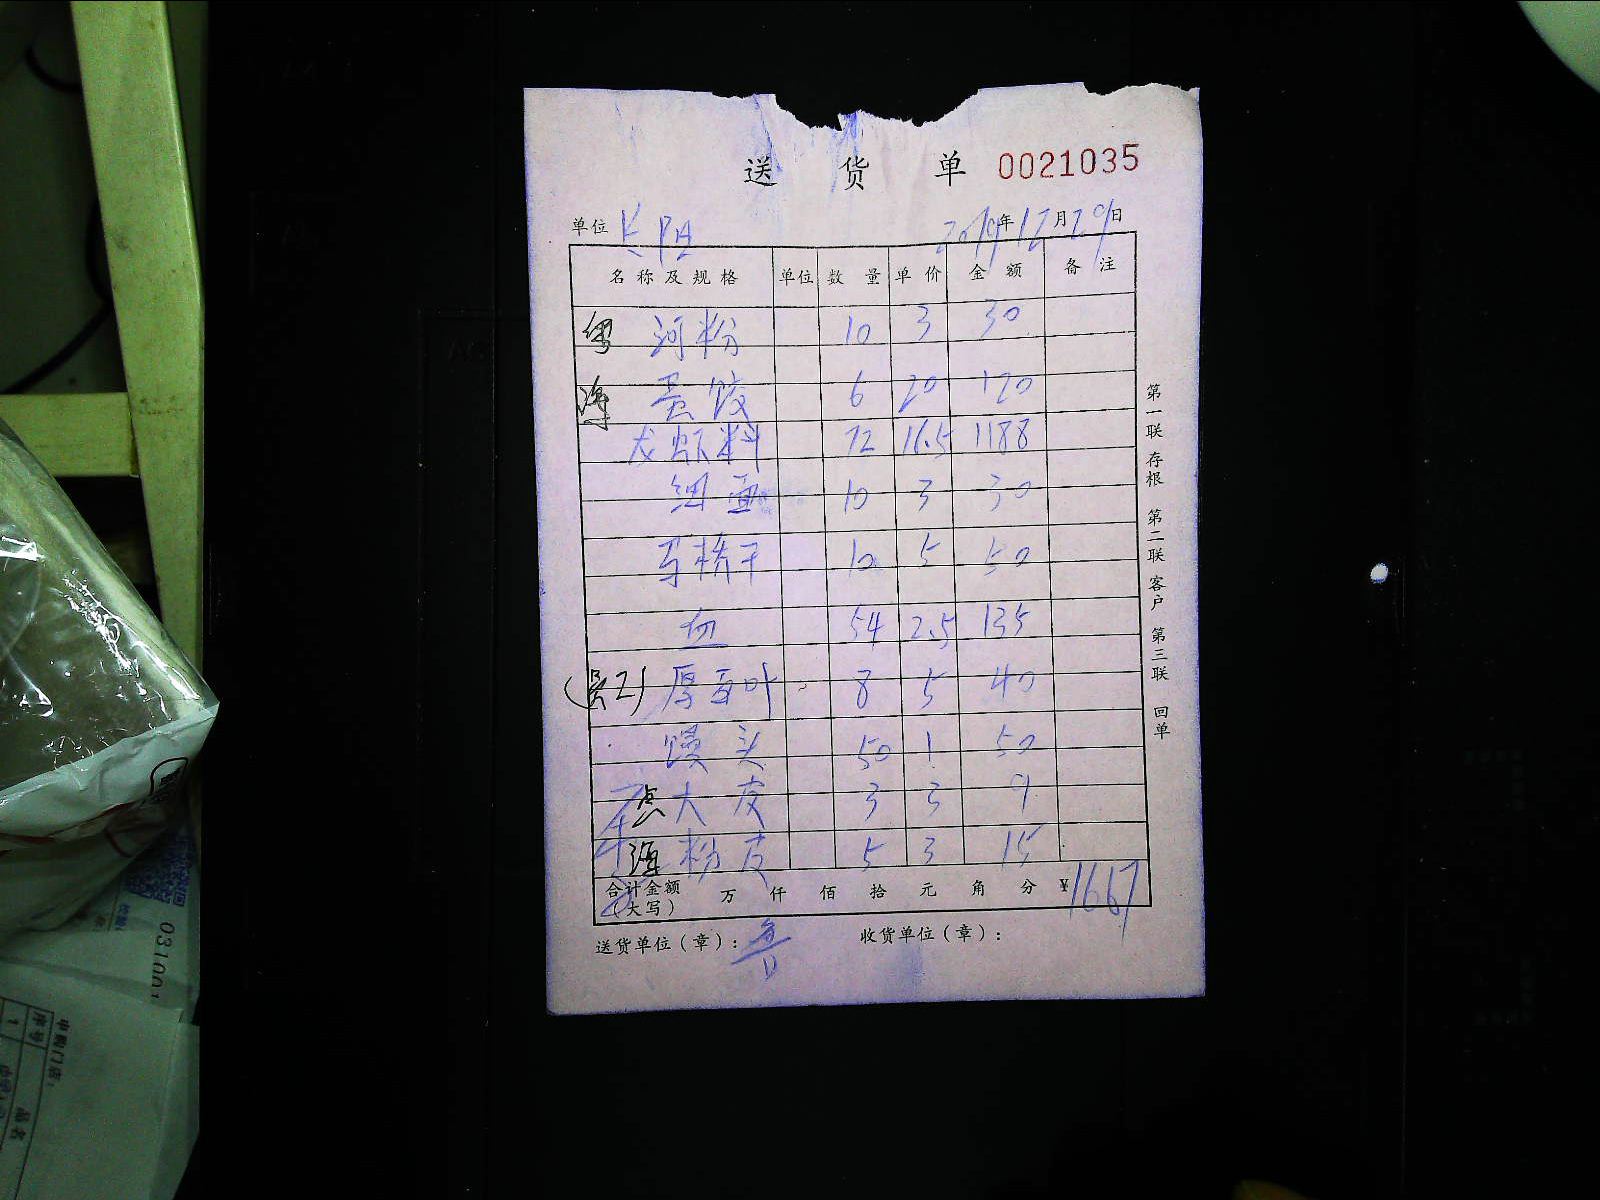 送货单 0021035
单位 长阳 2019年12月29日
名称及规格 单位 数量 单价 金额 备注
粤 河粉 10 3 30
海 蛋饺 6 20 120
龙虾料 72 16.5 1188
细面 10 3 30
马桥干 10 5 50
血 54 2.5 135
厚百叶 8 5 40
馒头 50 1 50
点 大皮 3 3 9
海 粉皮 5 3 15
合计金额（大写） 万 仟 佰 拾 元 角 分 ¥1667
送货单位（章）：鲁 收货单位（章）：
第一联 存根 第二联 客户 第三联 回单
03100
申购门店：
序号 品名
1